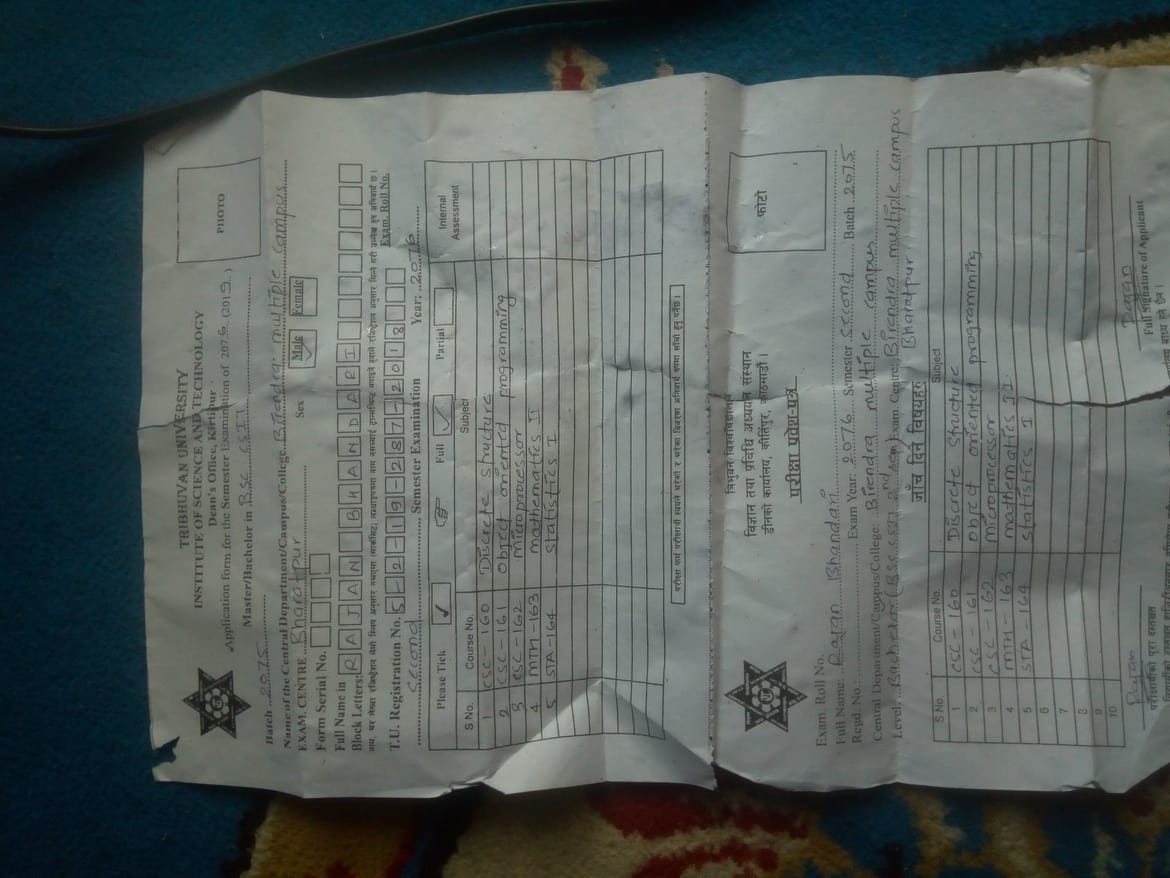 TRIBHUVAN UNIVERSITY
INSTITUTE OF SCIENCE AND TECHNOLOGY
Dean's Office, Kirtipur
Application form for the Semester Examination of 2076 (2019.)
Batch 2075 Master/Bachelor in B.sc CSIT
PHOTO
Name of the Central Department/Campus/College. Birendra multiple campus
EXAM. CENTRE Bharatpur Sex Male Female
Form Serial No.
Full Name in
Block Letters: RAJAN BHANDARI
T.U. Registration No. 5-2-19-287-2018 Exam. Roll No.
Second Semester Examination Year: 2076
Please Tick ✓ Full ✓ Partial
S.No. Course No. Subject Internal Assessment
1 CSC-160 Discrete structure
2 CSC-161 Object oriented programming
3 CSC-162 microprocessor
4 MTH-163 mathematics II
5 STA-164 statistics I
त्रिभुवन विश्वविद्यालय
विज्ञान तथा प्रविधि अध्ययन संस्थान
डीनको कार्यालय, कीर्तिपुर, काठमाडौं ।
परीक्षा प्रवेश-पत्र
फोटो
Exam. Roll No.
Full Name: Rajan Bhandari
Regd. No. Exam Year: 2076 Semester second Batch 2075
Central Department/Campus/College: Birendra multiple campus
Level: Bachelor (BSc csit 2nd sem) Exam Centre: Birendra multiple campus
Bharatpur
जाँच दिने विषयहरु
S.No. Course No. Subject
1 CSC-160 Discrete Structure
2 CSC-161 Object oriented programming
3 CSC-162 Microprocessor
4 MTH-163 mathematics II
5 STA-164 statistics I
6
7
8
9
10
Rajan Rajan
परीक्षार्थीको पूरा दस्तखत Full Signature of Applicant